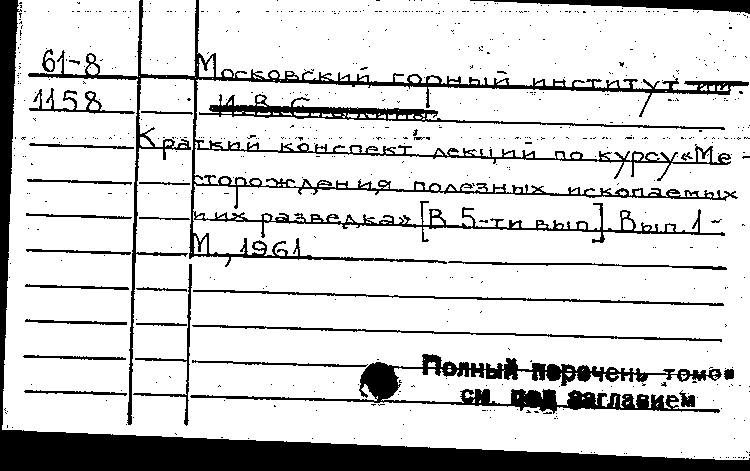 61-8 Московский горный институт им.
1158 И.В. Сталина.
Краткий конспект лекций по курсу «Ме-
сторождения полезных ископаемых
и их разведка» [В 5-ти вып]. Вып. 1-
М., 1961.
Полный перечень томов
см. под заглавием